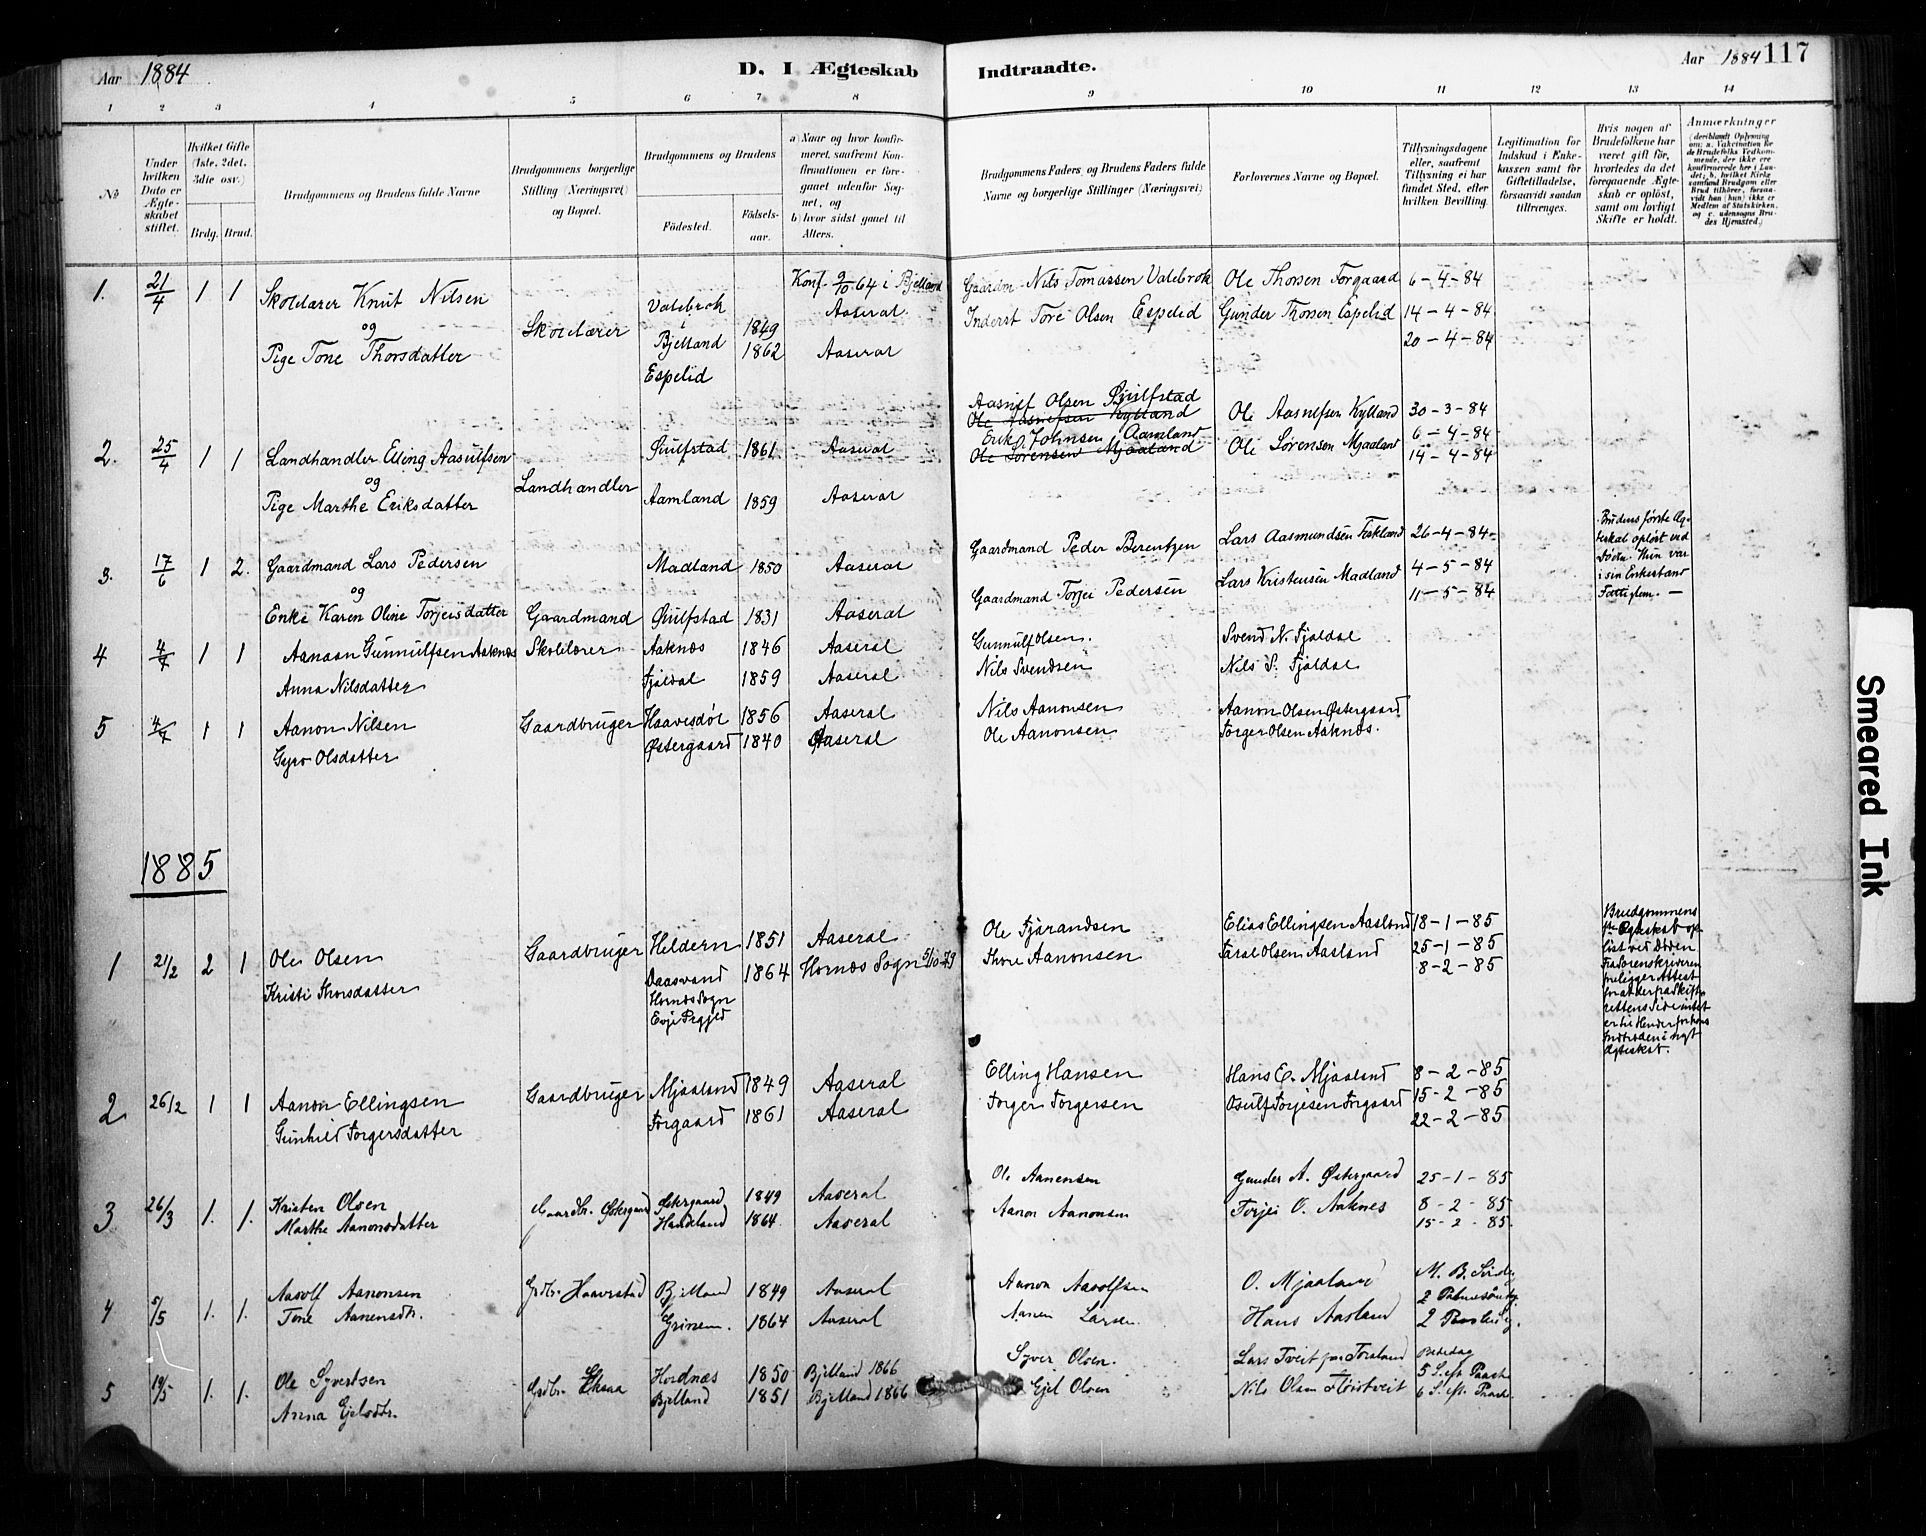 Aar 1884
D. I Ægteskab Indtraadte.
Aar 1884 117
1 2 3 4 5 6 7 8 9 10 11 12 13 14
No
Under hvilken Dato er Ægteskabet stiftet.
Hvilket Gifte (1ste, 2det, 3die osv.)
Brdg. Brud.
Brudgommens og Brudens fulde Navne
Brudgommens borgerlige Stilling (Næringsvei) og Bopæl.
Brudgommens og Brudens
Fødested. Fødselsaar.
a) Naar og hvor konfirmeret, saafremt Konfirmationen er foregaaet udenfor Sognet, og
b) hvor sidst gaaet til Alters.
Brudgommens Faders og Brudens Faders fulde Navne og borgerlige Stillinger (Næringsvei)
Forlovernes Navne og Bopæl.
Tillysningsdagene eller, saafremt Tillysning ei har fundet Sted, efter hvilken Bevilling.
Legitimation for Indskud i Enkekassen samt for Giftetilladelse, forsaavidt saadan tiltrænges.
Hvis nogen af Brudefolkene har været gift før, hvorledes da det foregaaende Ægteskab er opløst, samt om lovligt Skifte er holdt.
Anmærkninger
(deriblandt Oplysning om: a. Vakcination for de Brudefolks Vedkommende, der ikke ere konfirmerede her i Landet; b. hvilket Kirkesamfund Brudgom eller Brud tilhører, forsaavidt han (hun) ikke er Medlem af Statskirken, og c. udensogns Brudes Hjemsted.)
1. 21/4 1 1 Skolelærer Knut Nilsen Valebrok Konf. 9/10 64 i Bjelland Gaardm. Nils Tomassen Valebrok Ole Thorsen Forgaard 6-4-84
og Skolelærer Bjelland 1849 Aaseral Inderst Tore Olsen Espelid Gunder Thorsen Espelid 14-4-84
Pige Tone Thorsdatter Espelid 1862 Aaseral 20-4-84
Aasulf Olsen Øuilfstad
Ole Aasulfsen Kylland Ole Aasulfsen Kylland 30-3-84
Erik Johnsen Aamland 6-4-84
2. 25/4 1 1 Landhandler Elling Aasulfsen Øuilfstad 1861 Aaseral Ole Sørensen Mjaaland Ole Sørensen Mjaaland 14-4-84
og Landhandler
Pige Marthe Eriksdatter Aamland 1859 Aaseral
3. 17/6 1 2. Gaardmand Lars Pedersen Madland 1850 Aaseral Gaardmand Peder Berentzen Lars Aasmundsen 26-4-84
og Gaardmand Torjei Pedersen Lars Kristensen Madland 4-5-84
Enke Karen Oline Torjeisdatter Gaardmand Øuilfstad 1831 Aaseral 11-5-84
Brudens første Ægteskab opløst ved Døden. Hun var i sin Enkestand Fattiglem.
4 4/7 1 1 Aanaon Gunnulfsen Aaknæs Skolelærer Aaknæs 1846 Aaseral Gunnulf Olsen. Svend N. Fjaldal
Anna Nilsdatter Fjaldal 1859 Aaseral Nils Svendsen Nils S. Fjaldal
5 4/7 1 1 Aanon Nilsen Gaardbruger Haavesdøl 1856 Aaseral Nils Aanonsen Aanon Olsen Østergaard
Gyro Olsdatter Østergaard 1840 Aaseral Ole Aanonsen Torger Olsen Aaknæs.
1885
1 21/2 2 1 Ole Olsen Gaardbruger Heldern 1851 Aaseral Ole Fjærandsen Elias Ellingsen Aasland 18-1-85
Kristi Thorsdatter Daasvand 1864 Hornæs Sogn 5/10-79 Thore Aanonsen Taral Olsen Aasland 25-1-85
Hornæs Sogn 8-2-85
Evje Prgjld
Brudgommens 1ste Ægteskab opløst ved Døden. Fra Sorenskriveren foreligger Attest for at der fra Skifterettens Side intet er til Hinder for hans Indtræden i nyt Ægteskab.
2 26/2 1 1 Aanon Ellingsen Gaardbruger Mjaaland 1849 Aaseral Elling Hansen Hans E. Mjaaland 8-2-85
Gunhild Torgersdatter Forgaard 1861 Aaseral Torger Torgersen Osulf Torjesen Forgaard 15-2-85
22-2-85
3 26/3 1. 1. Kristen Olsen Gaardbr. Østergaard Østergaard 1849 Aaseral Ole Aanensen Gunder A. Østergaard 25-1-85
Marthe Aanonsdatter Haadland 1864 Aaseral Aanon Aanonsen Torjei O. Aaknes 8-2-85
15-2-85.
4 5/5 1. 1. Aasolf Aanonsen Grdbr. Haaverstad Bjelland 1849 Aaseral Aanon Aasolfsen O. Mjaaland M. B.
Tone Aanensdtr. Grinem. 1864 Aaseral Aanen Larsen Hans Aasland 2 Palmesøndg.
2 Paaskedg.
5 19/5 1. 1. Ole Syvertsen Grdbr. Eksaa Hordnæs 1850 Bjelland 1866 Syver Olsen. Lars Tveit paa Torsland Bededag
Anna Ejelsdtr. Bjelland 1851 Bjelland 1866 Ejel Olsen Nils Olsen Fløistveit 5 S. eft. Paaske
6 S. eft. Paaske.
Smeared Ink